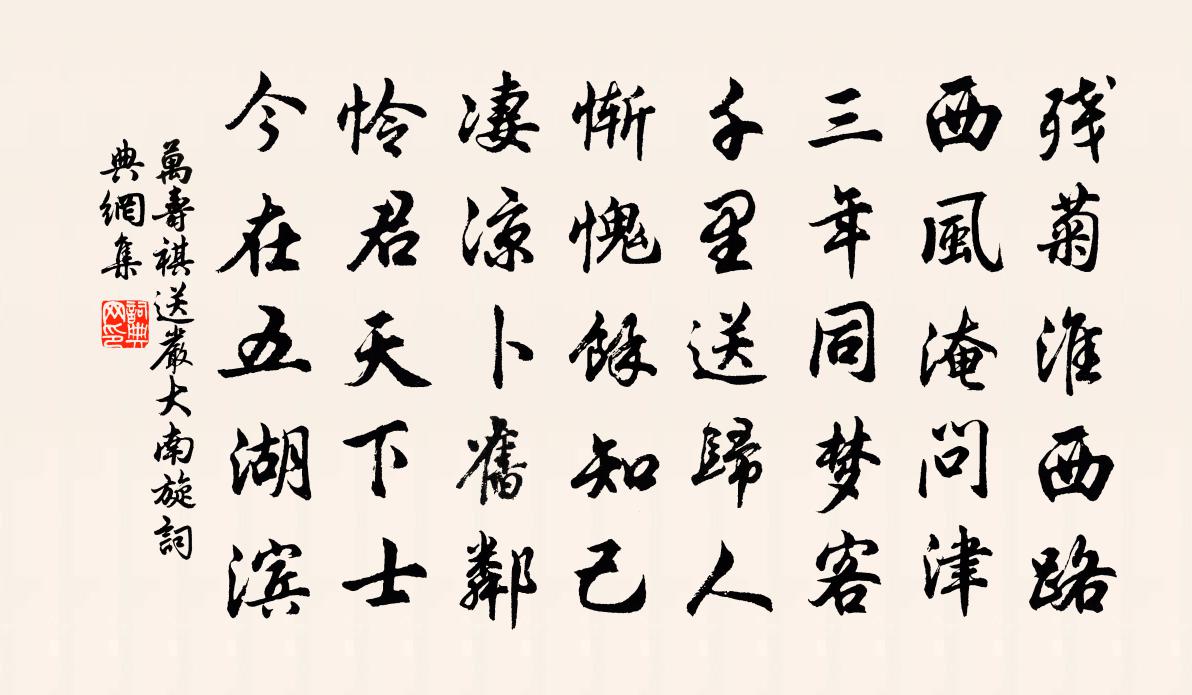 残菊淮西路
西風淹问津
三年同梦客
千里送歸人
惭愧馀知己
淒涼卜舊鄰
怜君天下士
今在五湖滨
萬壽祺送嚴大南旋詞
典網集
詞典
网印